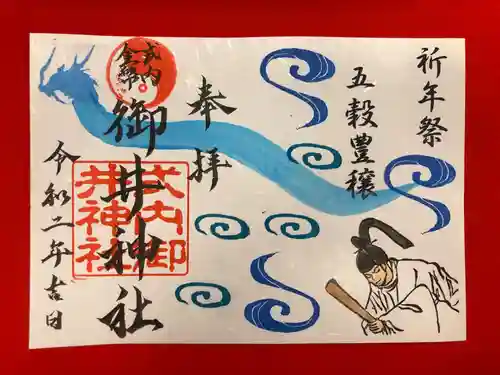 祈年祭
五穀豊穣
奉拝
式内
金幣
御井神社
式内御
井神社
令和二年吉日